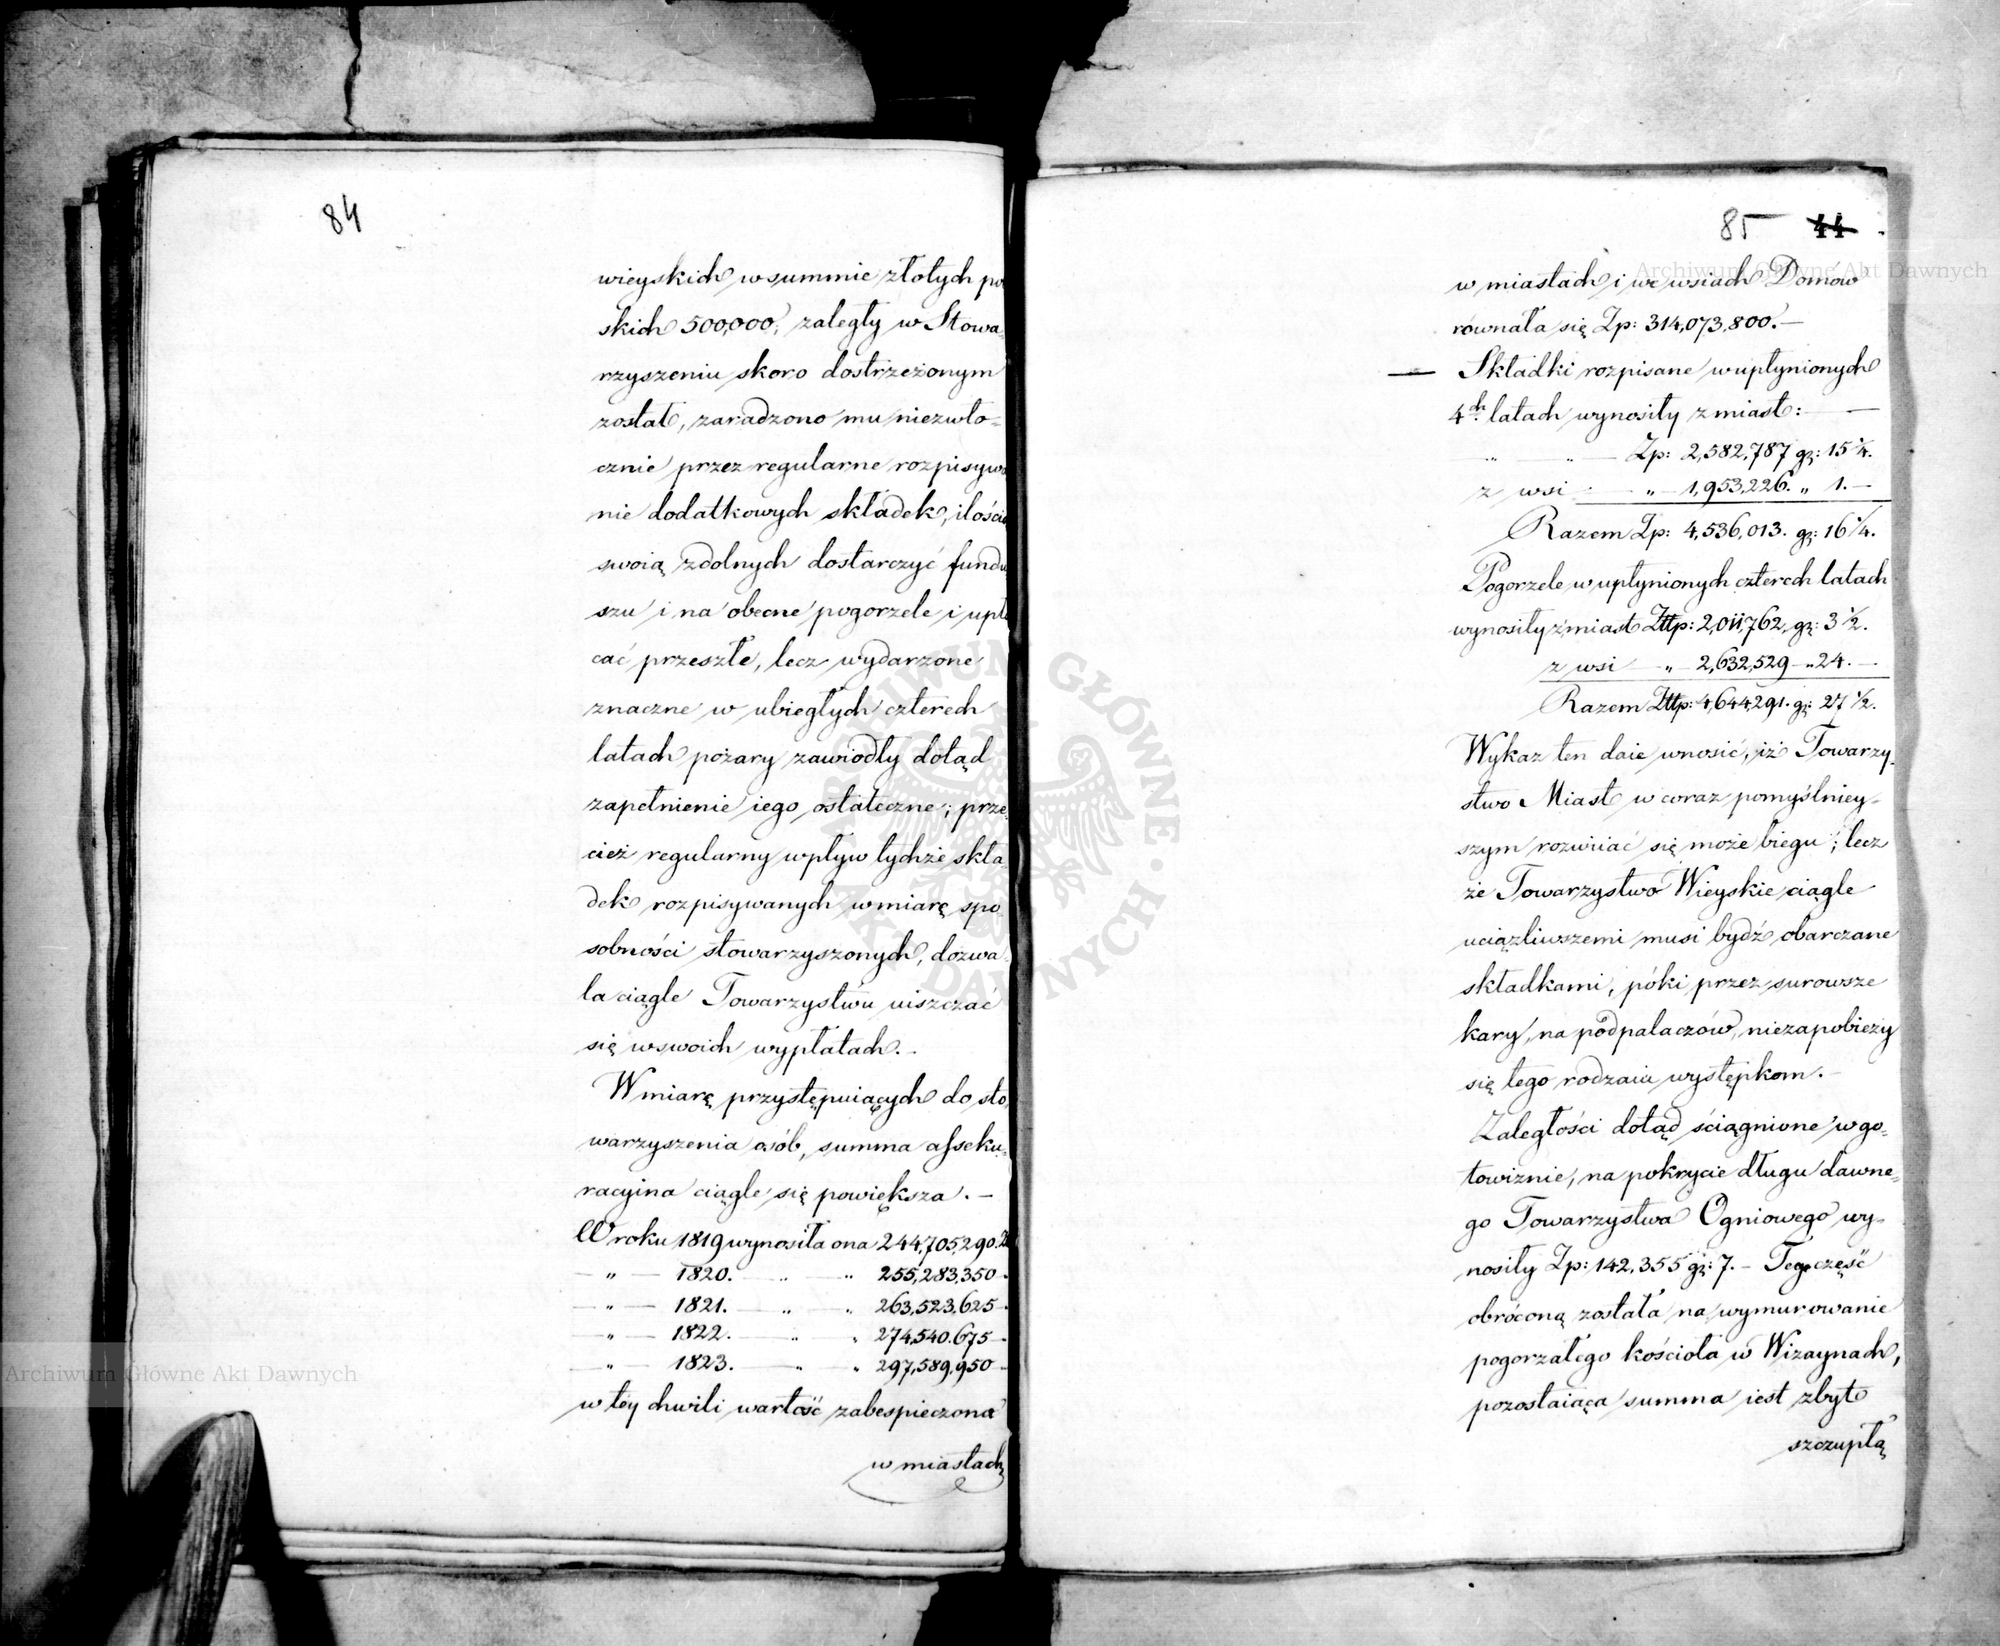 84
wieyskich w summie złotych po
skich 500,000, zaległy w Stowa-
rzyszeniu skoro dostrzeżonym
został, zaradzono mu niezwło=
cznie przez regularne rozpisywa
nie dodatkowych składek, ilością
swoią zdolnych dostarczyć fundu
szu i na obecne pogorzele i upła
cać przeszłe, lecz wydarzone
znaczne w ubiegłych czterech
latach pożary zawiodły dotąd
zapełnienie iego ostateczne; prze
cież regularny wpływ tychże skła
dek rozpisywanych w miarę spo
sobności stowarzyszonych, dozwa-
la ciągle Towarzystwu uiszczać
się w swoich wypłatach.-
W miarę przystępuiących do sto
warzyszenia osób, summa asseku=
racyina ciągle się powiększa. -
W roku 1819 wynosiła ona 244,705,290.
— " — 1820. — " — " 255,283,350.
— " — 1821. — " — " 263,523,625.
— " — 1822. — " — " 274,540,675.
— " — 1823. — " — " 297,589,950
w tey chwili wartość zabespieczona
w miastach
85 44
w miastach i we wsiach Domów
równała się Zp: 314,073,800.—
— Składki rozpisane w upłynionych
4ch latach wynosiły z miast: —
" " — Zp: 2,582,787 gr: 15 1/4.
z wsi — " — 1,953,226. " 1.—
Razem Zp: 4,536,013. gr: 16 1/4.
Pogorzele w upłynionych czterech latach
wynosiły z miast Złłp: 2,011,762, gr: 3 1/2.
z wsi — " 2,632,529 — " 24. —
Razem Złłp: 4,644,291. gr: 27 1/2.
Wykaz ten daie wnosić, iż Towarzy-
stwo Miast w coraz pomyślniey-
szym rozwiiać się może biegu; lecz
że Towarzystwo Wieyskie ciągle
uciążliwszemi musi bydź obarczane
składkami, póki przez surowsze
kary, na podpalaczów, niezapobieży
się tego rodzaiu występkom.-
Zaległości dotąd ściągnione w go-
towiznie, na pokrycie długu dawne=
go Towarzystwa Ogniowego wy-
nosiły Zp: 142,355 gr: 7.- Tego część
obróconą została na wymurowanie
pogorzałego kościoła w Wizaynach,
pozostaiąca summa iest zbyt
szczupłą
Archiwum Główne Akt Dawnych
Archiwum Główne Akt Dawnych
ARCHIWUM GŁÓWNE AKT DAWNYCH